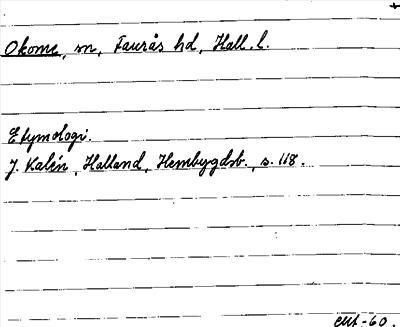 Okome, sn, Faurås hd, Hall. l.
Etymologi.
J. Kalén, Halland, Hembygdsb., s. 118.
-60.